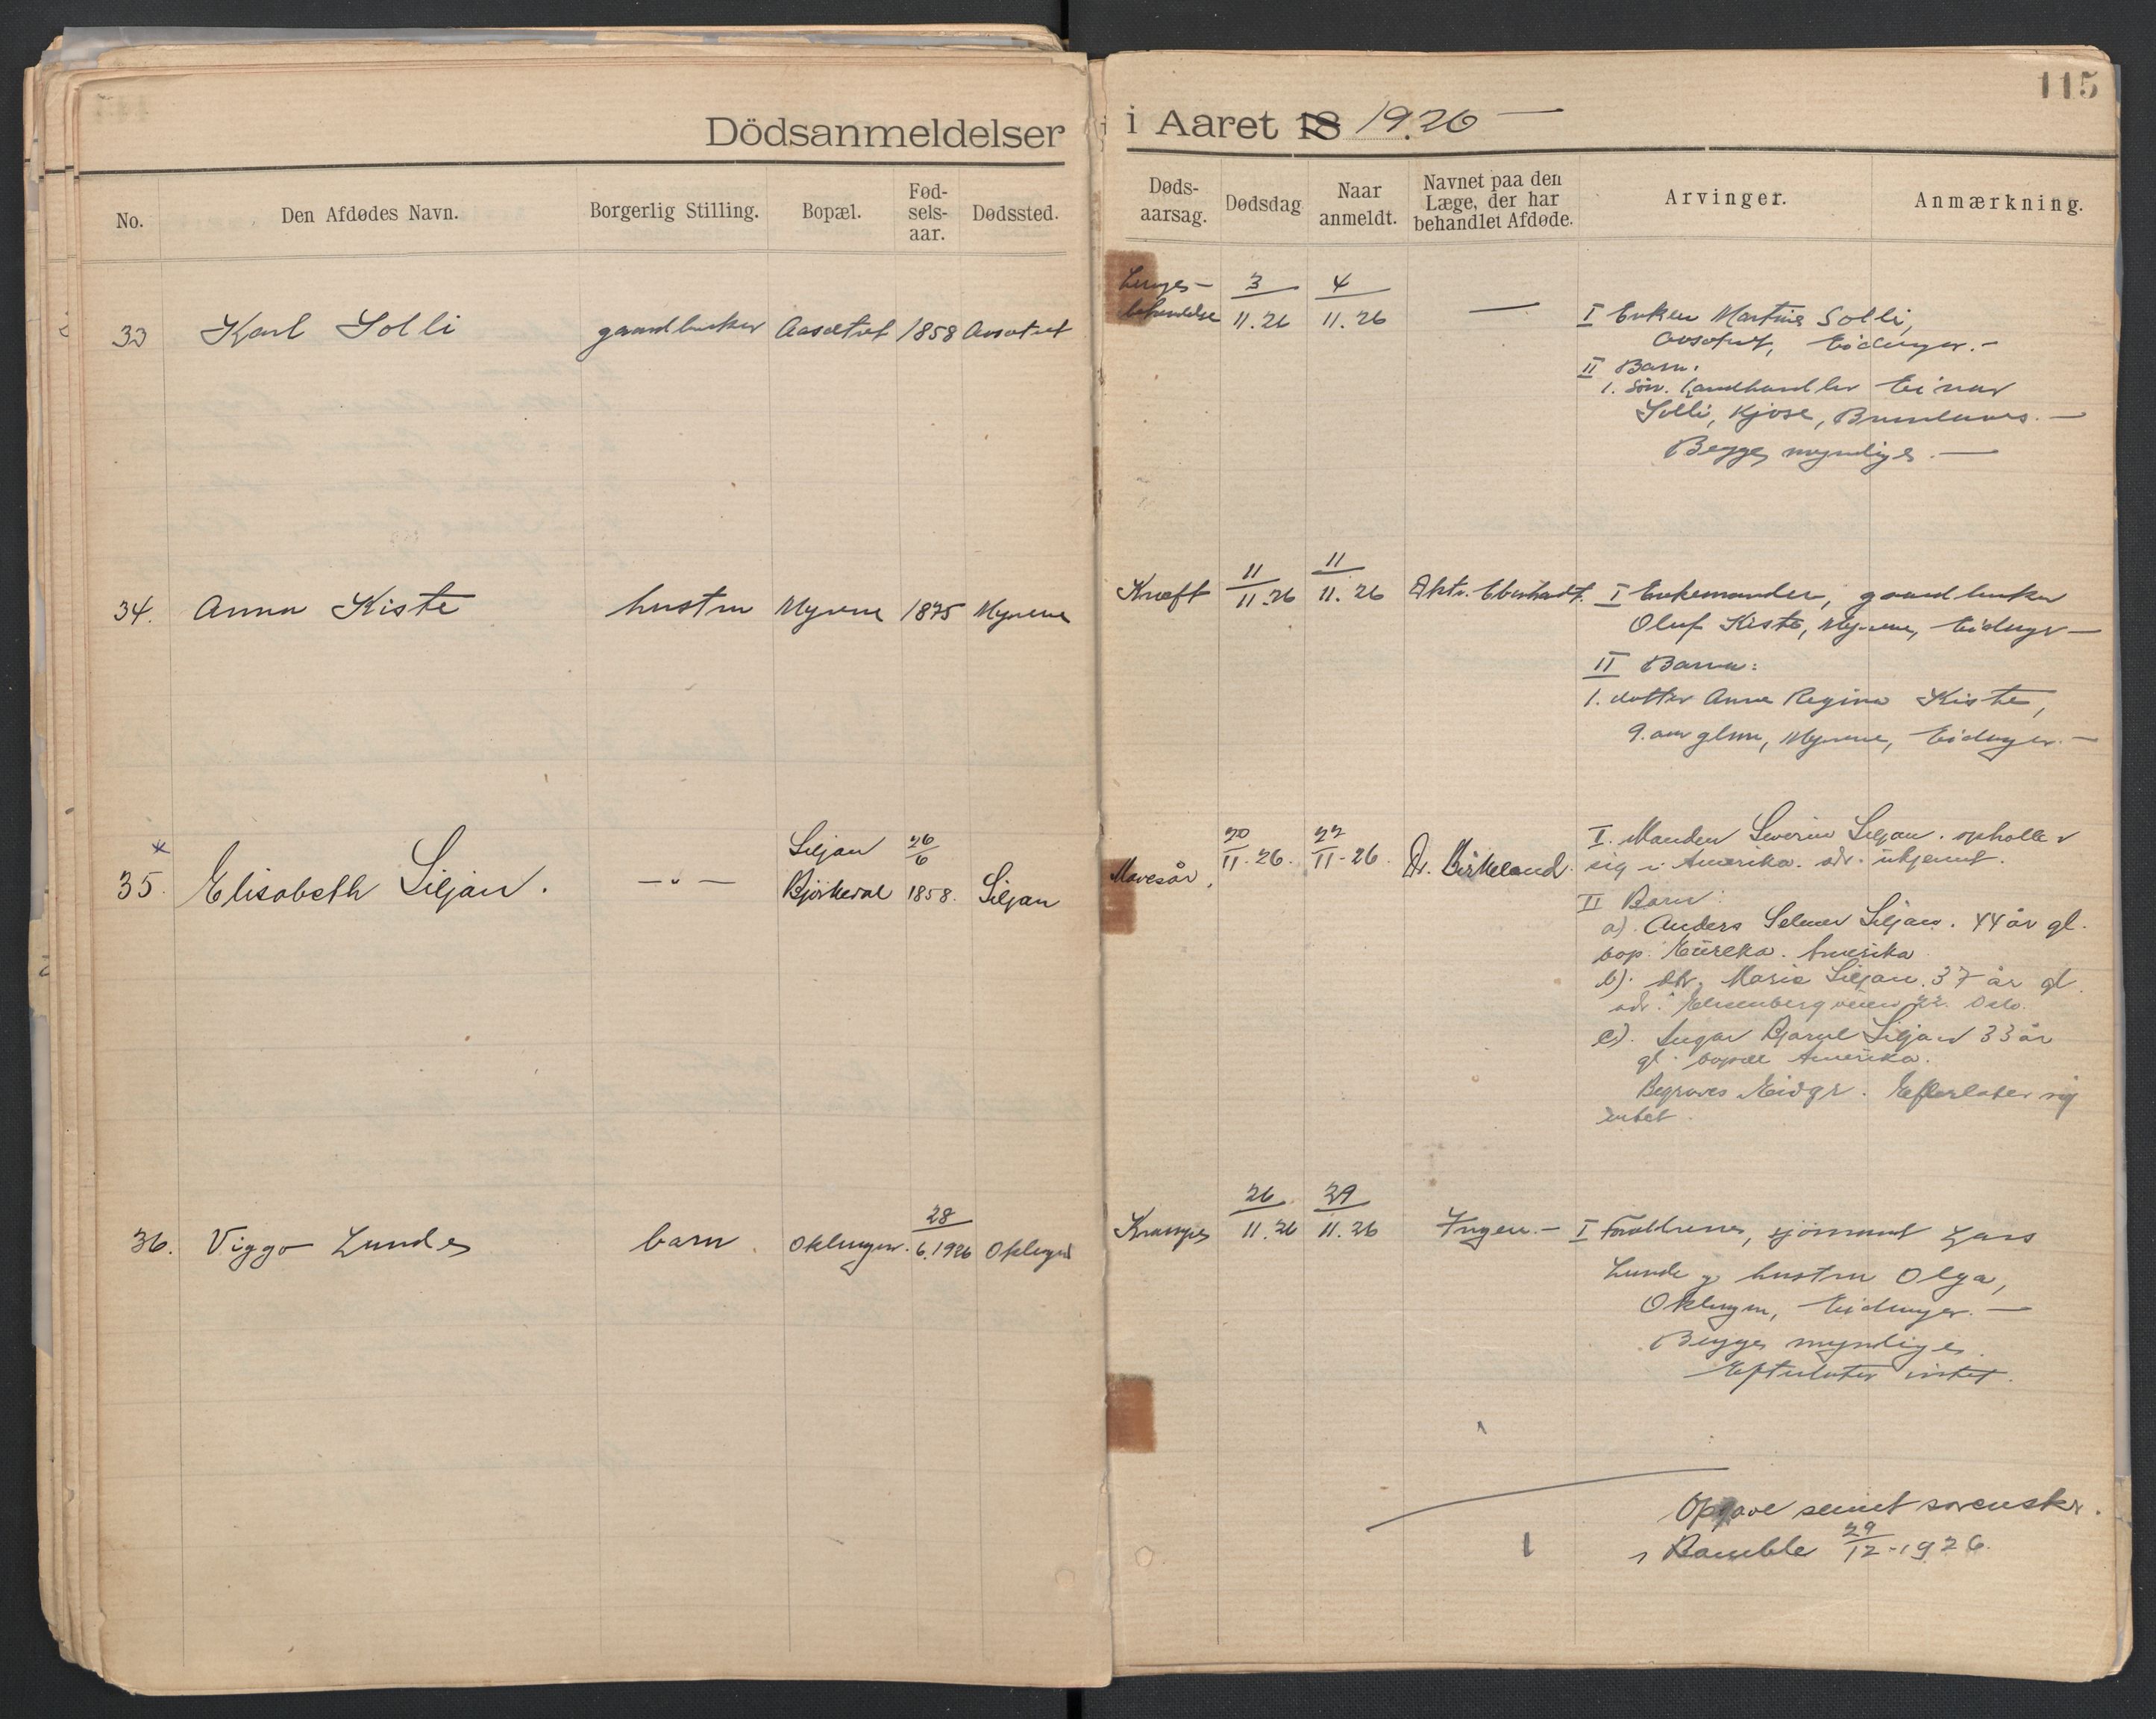 115
Dödsanmeldelser i Aaret 18 1926 —
No.
Den Afdødes Navn.
Borgerlig Stilling.
Bopæl.
Fød-
sels-
aar.
Dødssted.
Døds-
aarsag.
Dødsdag
Naar
anmeldt.
Navnet paa den
Læge, der har
behandlet Afdøde.
Arvinger.
Anmærkning.
33 Karl Solli gaardbruker Aasætret 1858 Aasætret
Lunges-
betændelse
3
11.26
4
11.26
—
I Enken Martine Solli,
Aasætret, Eidanger. —
II Barn:
1. Søn. Landhandler Einar
Solli, Kjose, Brunlanes. —
Begge myndige. —
34. Anna Kiste hustru Myrene 1875 Myrene
Kræft
11
11.26
11
11.26
Dktr. Eberhardt.
I Enkemanden, gaardbruker
Oluf Kiste, Myrene, Eidanger —
II Barn:
1. datter Anne Regine Kiste,
9. aar glm, Myrene, Eidanger. —
35. Elisabeth Siljan. — " —
Siljan
Bjørkedal
26
6
1858.
Siljan
Mavesår,
20
11.26.
22
11-26.
Dr. Birkeland.
I. Manden Severin Siljan. opholder
sig i Amerika. adr. ukjennt.
II Barn:
a). Anders Selmer Siljan. 44 år gl.
bop. Eureka. Amerika
b). dtr. Marie Siljan. 37 år gl.
adr.: 22. Oslo.
c). Bjarne Siljan 33 år
gl. bopæl Amerika.
Begraves Eidgr. Efterlater sig
intet.
36. Viggo Lunde barn Oklungen.
28
6.1926
Oklungen
Krampe
26
11.26
29
11.26
Ingen. —
I Forældrene, sjömand Lars
Lunde og hustru Olga,
Oklungen, Eidanger. —
Begge myndige.
Efterlater intet.
Opgave sennt sorenskr.
i Bamble 29/12-1926.